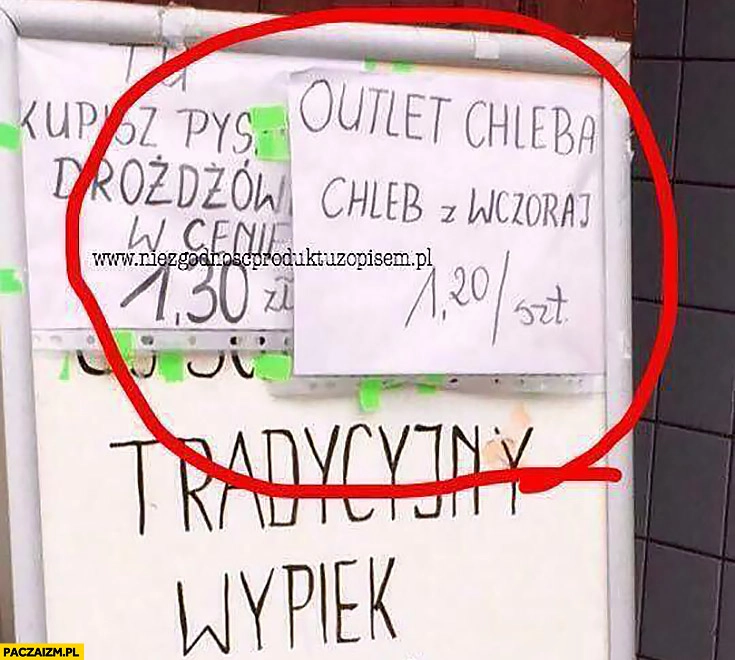 TU
KUPISZ PYS
DROŻDŻÓW
W CENIE
1,30 zł
OUTLET CHLEBA
CHLEB z WCZORAJ
1,20/szt.
www.niezgodnoscproduktuzopisem.pl
TRADYCYJNY
WYPIEK
PACZAIZM.PL